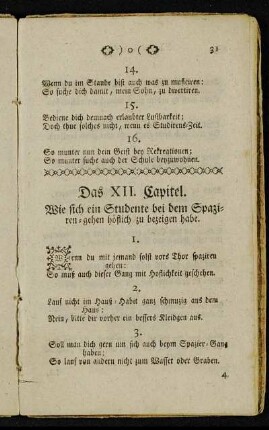 ) o ( 31
14.
Wenn du im Stande bist auch was zu musiciren:
So suche dich damit, mein Sohn, zu divertiren.
15.
Bediene dich demnach erlaubter Lustbarkeit:
Doch thue solches nicht, wenn es Studirens-Zeit.
16.
So munter nun dein Geist bey Rekreationen:
So munter suche auch der Schule beyzuwohnen.
Das XII. Capitel.
Wie sich ein Studente bei dem Spazi-
ren-gehen höflich zu bezeigen habe.
1.
Wenn du mit jemand solst vors Thor spaziren
gehen:
So muß auch dieser Gang mit Höflichkeit geschehen.
2.
Lauf nicht im Hauß-Habit ganz schmuzig aus dem
Haus:
Nein, bitte dir vorher ein bessers Kleidgen aus.
3.
Soll man dich gern um sich auch beym Spazier-Gang
haben:
So lauf von andern nicht zum Wasser oder Graben.
4.